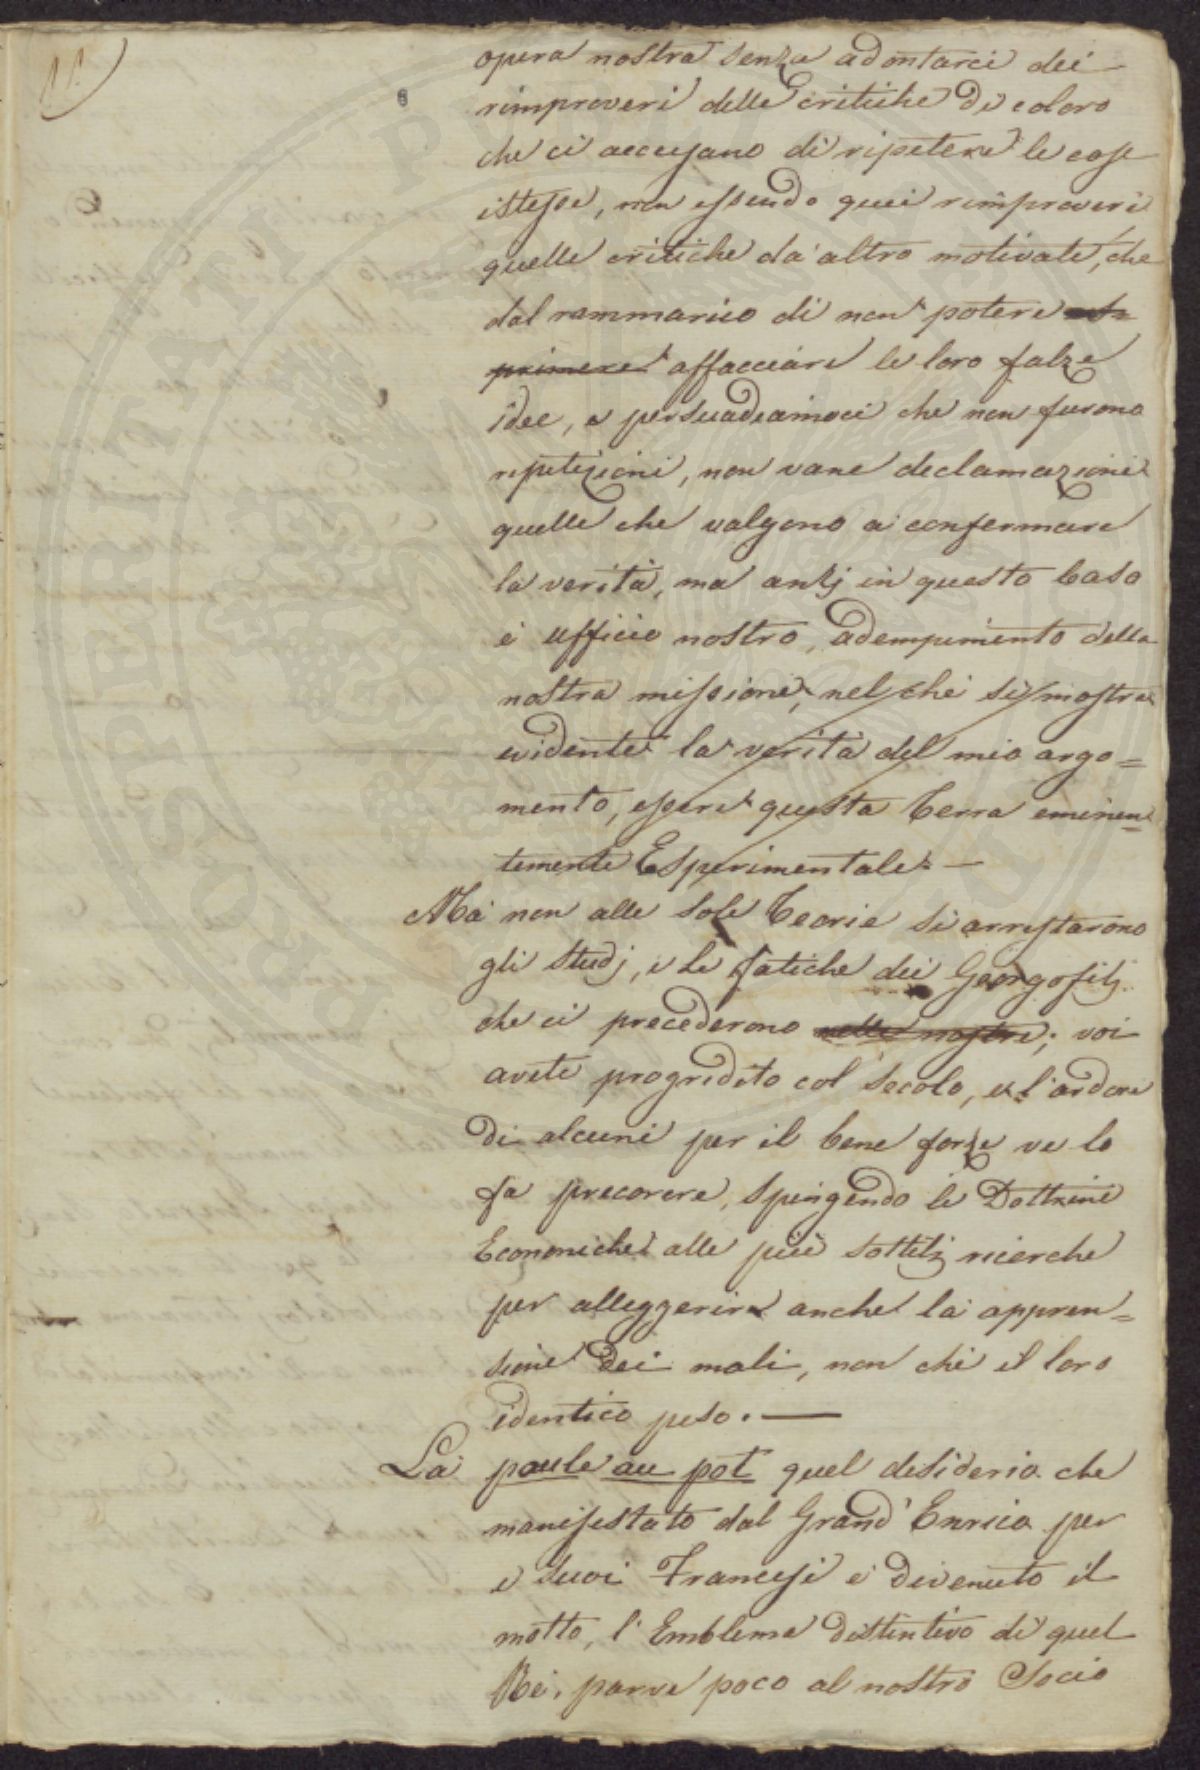 11)
opera nostra senza adontarci dei
rimproveri delle critiche di coloro
che ci accusano di ripetere le cose
istesse, non essendo quei rimproveri
quelle critiche da altro motivate, che
dal rammarico di non potere
primere affacciare le loro falze
idee, e persuadiamoci che non furono
ripetizioni, non vane declamazioni
quelle che valgono a confermare
la verità, ma anzj in questo Caso
è ufficio nostro, adempimento della
nostra missione, nel che si mostra
evidente la verità del mio argo=
mento, essere questa Terra eminen=
temente Esperimentale. —
Ma non alle sole Teorie si arrestarono
gli studj, e le fatiche dei Georgofilj
che ci precederono nelle nostre; voi
avete progredito col secolo, e l'ardore
di alcuni per il bene forze ve lo
fa precorere, spingendo le Dottrine
Economiche alle più sottilj ricerche
per alleggerire anche la appren=
sione dei mali, non che il loro
identico peso. —
La poule au pot quel desiderio che
manifestato dal Grand'Enrico per
i suoi Francesi è divenuto il
motto, l'Emblema distintivo di quel
Rè, parve poco al nostro Socio
POSPERITATI PUBLICAE